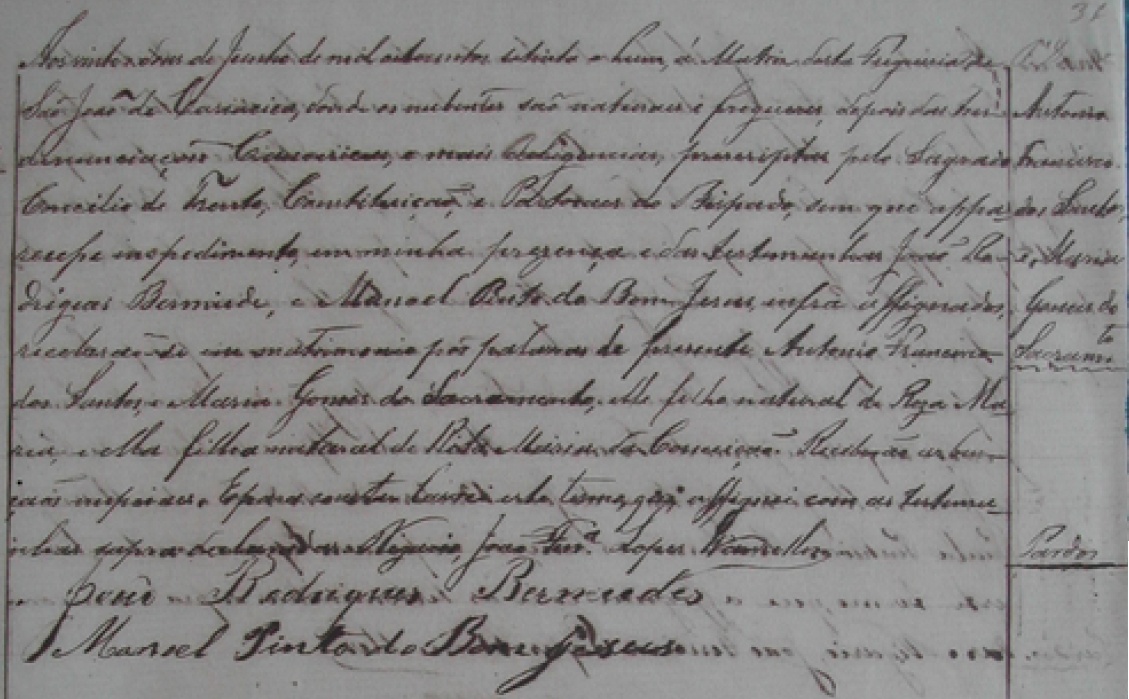 31
Aos vinte dias de Junho de mil oitocentos setenta e hum, á Matriz desta Freguezia de
São João de Cariacica, donde os nubentes são naturaes e freguezes, depois das tres
denunciações Canonicas, e mais deligencias, prescriptas pelo Sagrado
Concilio de Trento, Constituição, e Pastoraes do Bispado, sem que appa-
recesse impedimento, em minha prezença e das testemunhas João Ro-
drigues Bermude, e Manoel Pinto do Bom Jesus, infra assignados,
receberão-se em matrimonio por palavras de prezente Antonio Francisco
dos Santos, e Maria Gomes do Sacramento, elle filho natural de Roza Ma
ria, e ella filha natural de Rita Maria da Conceição. Receberão as ben-
çãos nupciaes. E para constar lavrei este termo, que assignei com as testemu-
nhas supra declaradas. O Vigario João Lopes
José Rodrigues Bermudes
Manoel Pinto do Bom Jezus
Antonio
Francisco
dos Santos,
e, Maria
Gomes do
Sacramto
Pardos